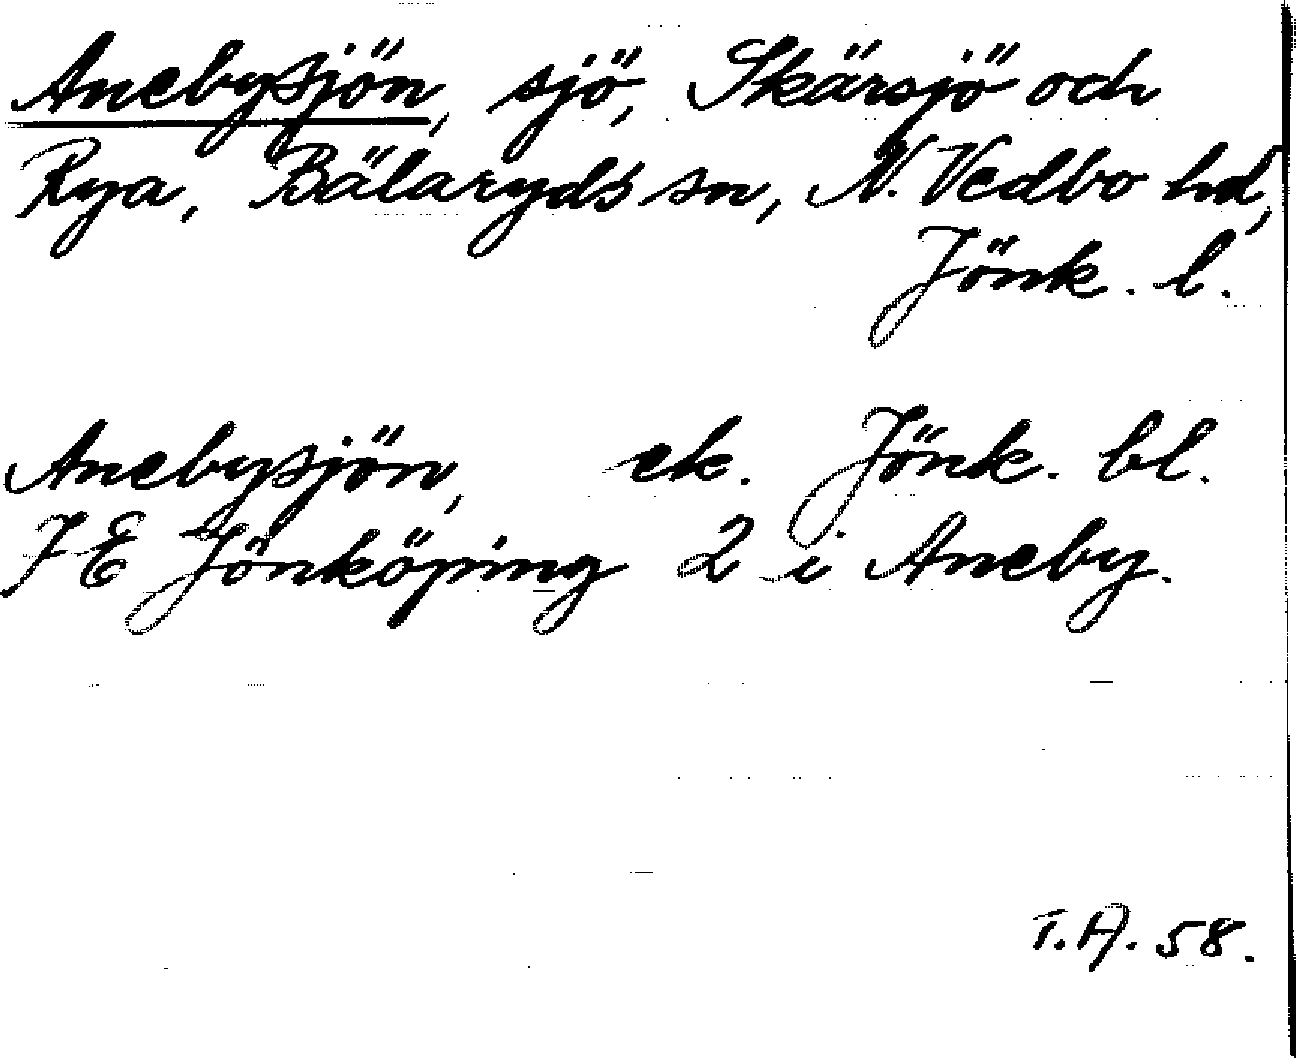 Anebysjön, sjö, Skärsjö och
Rya, Bälaryds sn, N. Vedbo hd,
Jönk. l.
Anebysjön, ek. Jönk. bl.
JE Jönköping 2 i Aneby.
T.A. 58.